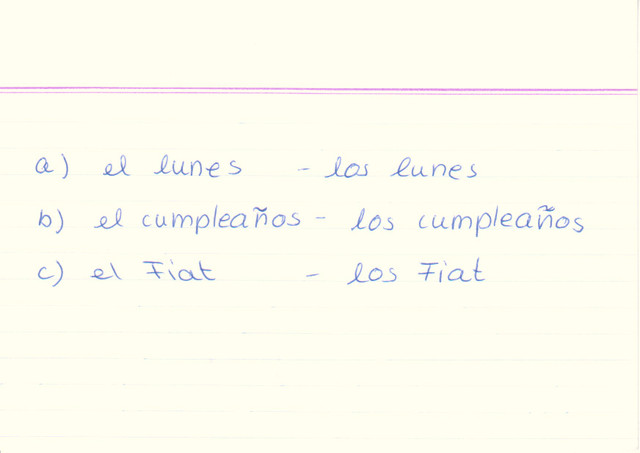 a) el lunes - los lunes
b) el cumpleaños - los cumpleaños
c) el Fiat - los Fiat